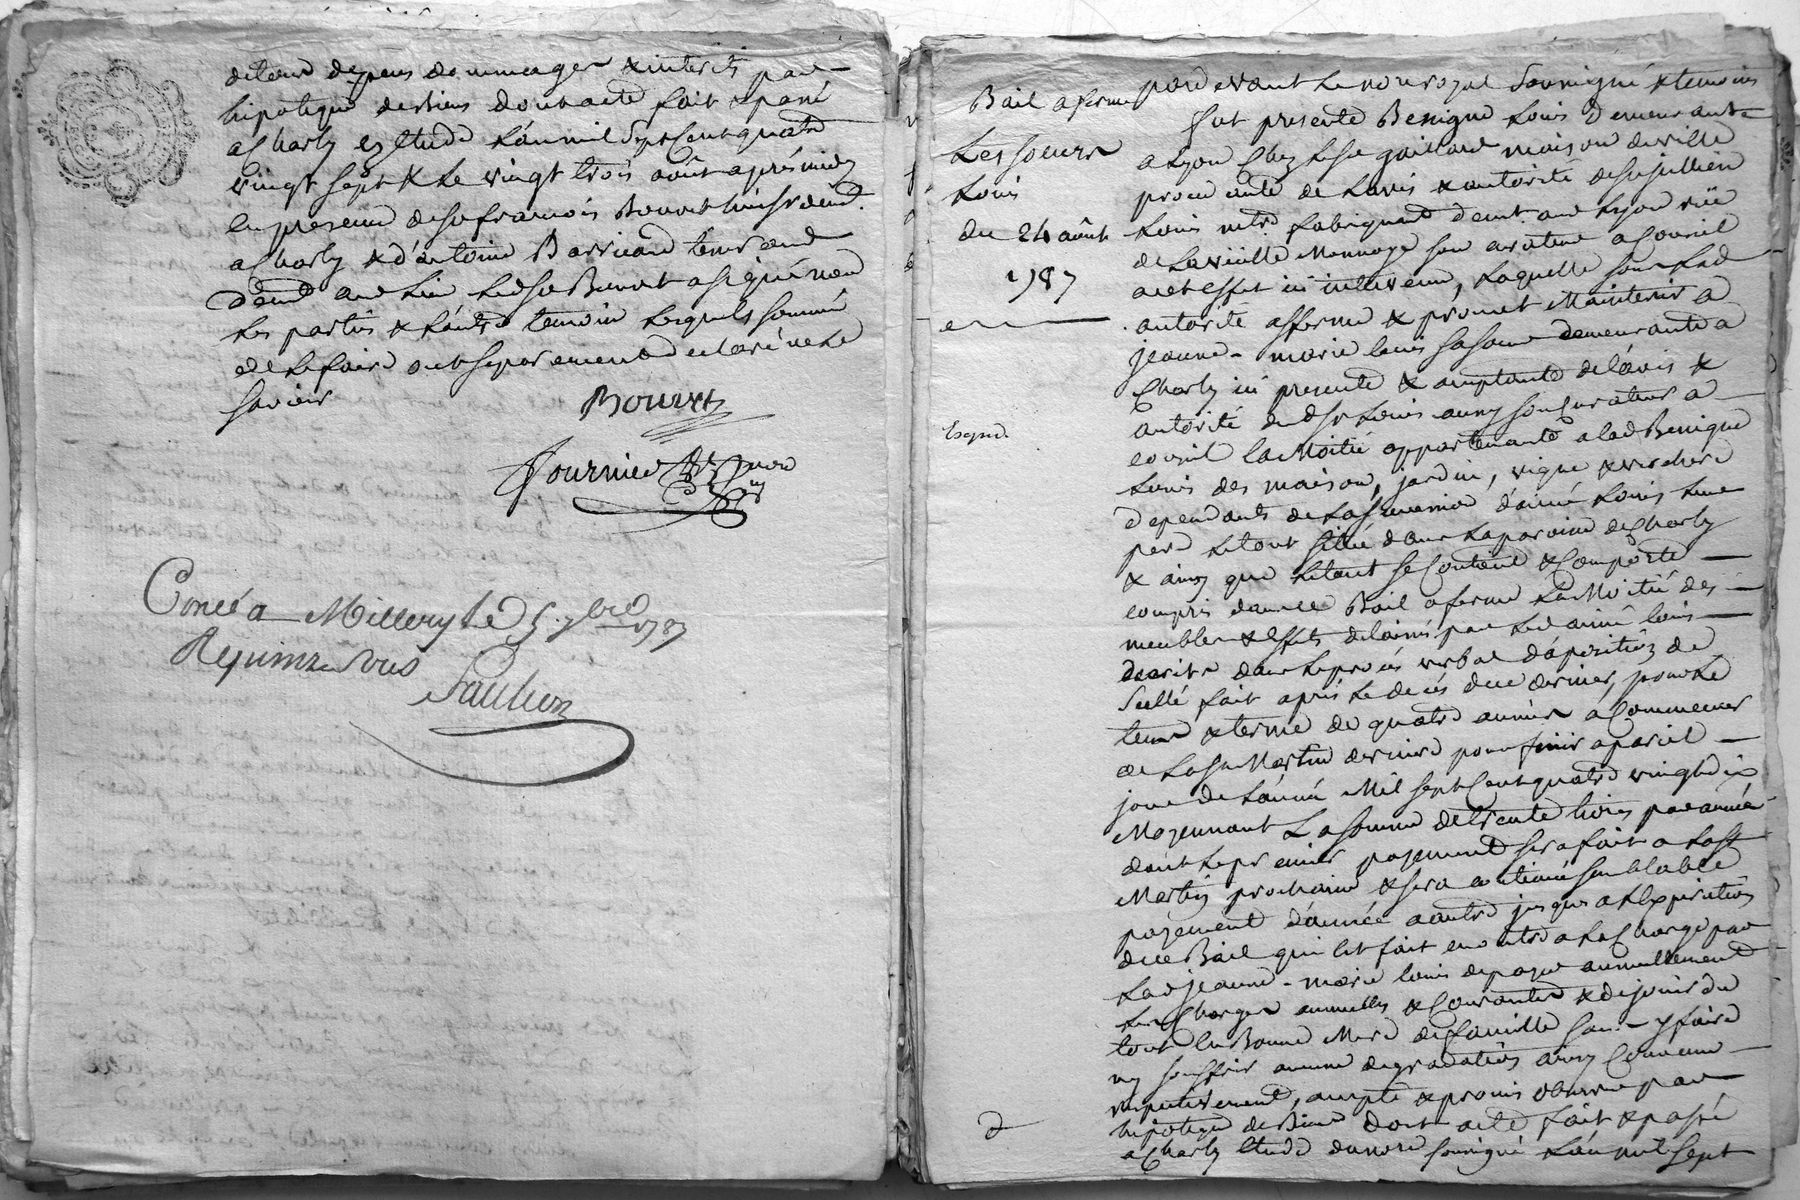 de tous depens dommages & interets par
hipoteque de biens dont acte fait & passé
a Charly Etude L'an mil Sept Cent quatre
vingt sept & Le vingt trois août après midy
En presence de sr francois Bouvet huissr demt
a Charly & d'antoine Barricand
demt aud Lieu Led Sr Bouvet a signé non
Les parties & L'autre temoin Lesquels sommé
de Le faire ont separement declaré ne Le
savoir
Bouvet
Fournier
Conlé a Millery Le 5 7bre 1787
Reçu quinze sous
Paulien
Bail a ferme
Les soeurs
Louis
du 24 août
1787
Exped.
par devant Le nore royal Soussigné & temoins
fut presente Benigne Louis Demeurante
a Lyon Chez Le Sr gaillard maison de ville
procedante de L'avis & autorité de Sr jullien
Louis mtre fabriquant demt aud Lyon rüe
de La vieille Monnoye son curateur a Conseil
a cet effet ici intervenu, Laquelle sous Lad
autorité afferme & promet Maintenir a
jeanne-marie Louis sa soeur demeurante a
Charly ici presente & acceptante de L'avis &
autorité dud Sr Louis aussy son Curateur a
Conseil La Moitié appartenante a lad Benigne
Louis des maison, jardin, vigne & verchere
dependants de La succession d'aimé Louis Leur
pere Le tout situé dans La paroisse de Charly
& ainsy que Le tout se Contient & Comporte
compris dans ce Bail a ferme La Moitié des
meubles & effets delaissés par Led aimé Louis
decrits dans Le procès verbal d'aposition de
Scellé fait après Le decès de ce dernier, pour Le
tems & terme de quatre années a Commencer
de La St Martin derniere pour finir a pareil
jour de L'année Mil sept Cent quatre vingt dix
Moyennant La somme de trente livres par année
dont Le premier payement sera fait a La St
Martin prochaine & sera continué semblable
payement d'année a autre jusques a L'Expiration
du ce Bail qui Est fait en outre a La Charge par
Lad jeanne-marie Louis de payer annuellement
Les Charges annuelles & Courantes & de jouir du
tout En Bonne Mere de famille sans y faire
ny souffrir aucune degradation ainsy Convenu
respectivement, accepté & promis observer par
hipoteque de Biens Dont acte fait & passé
a Charly Etude du nore soussigné L'an mil sept